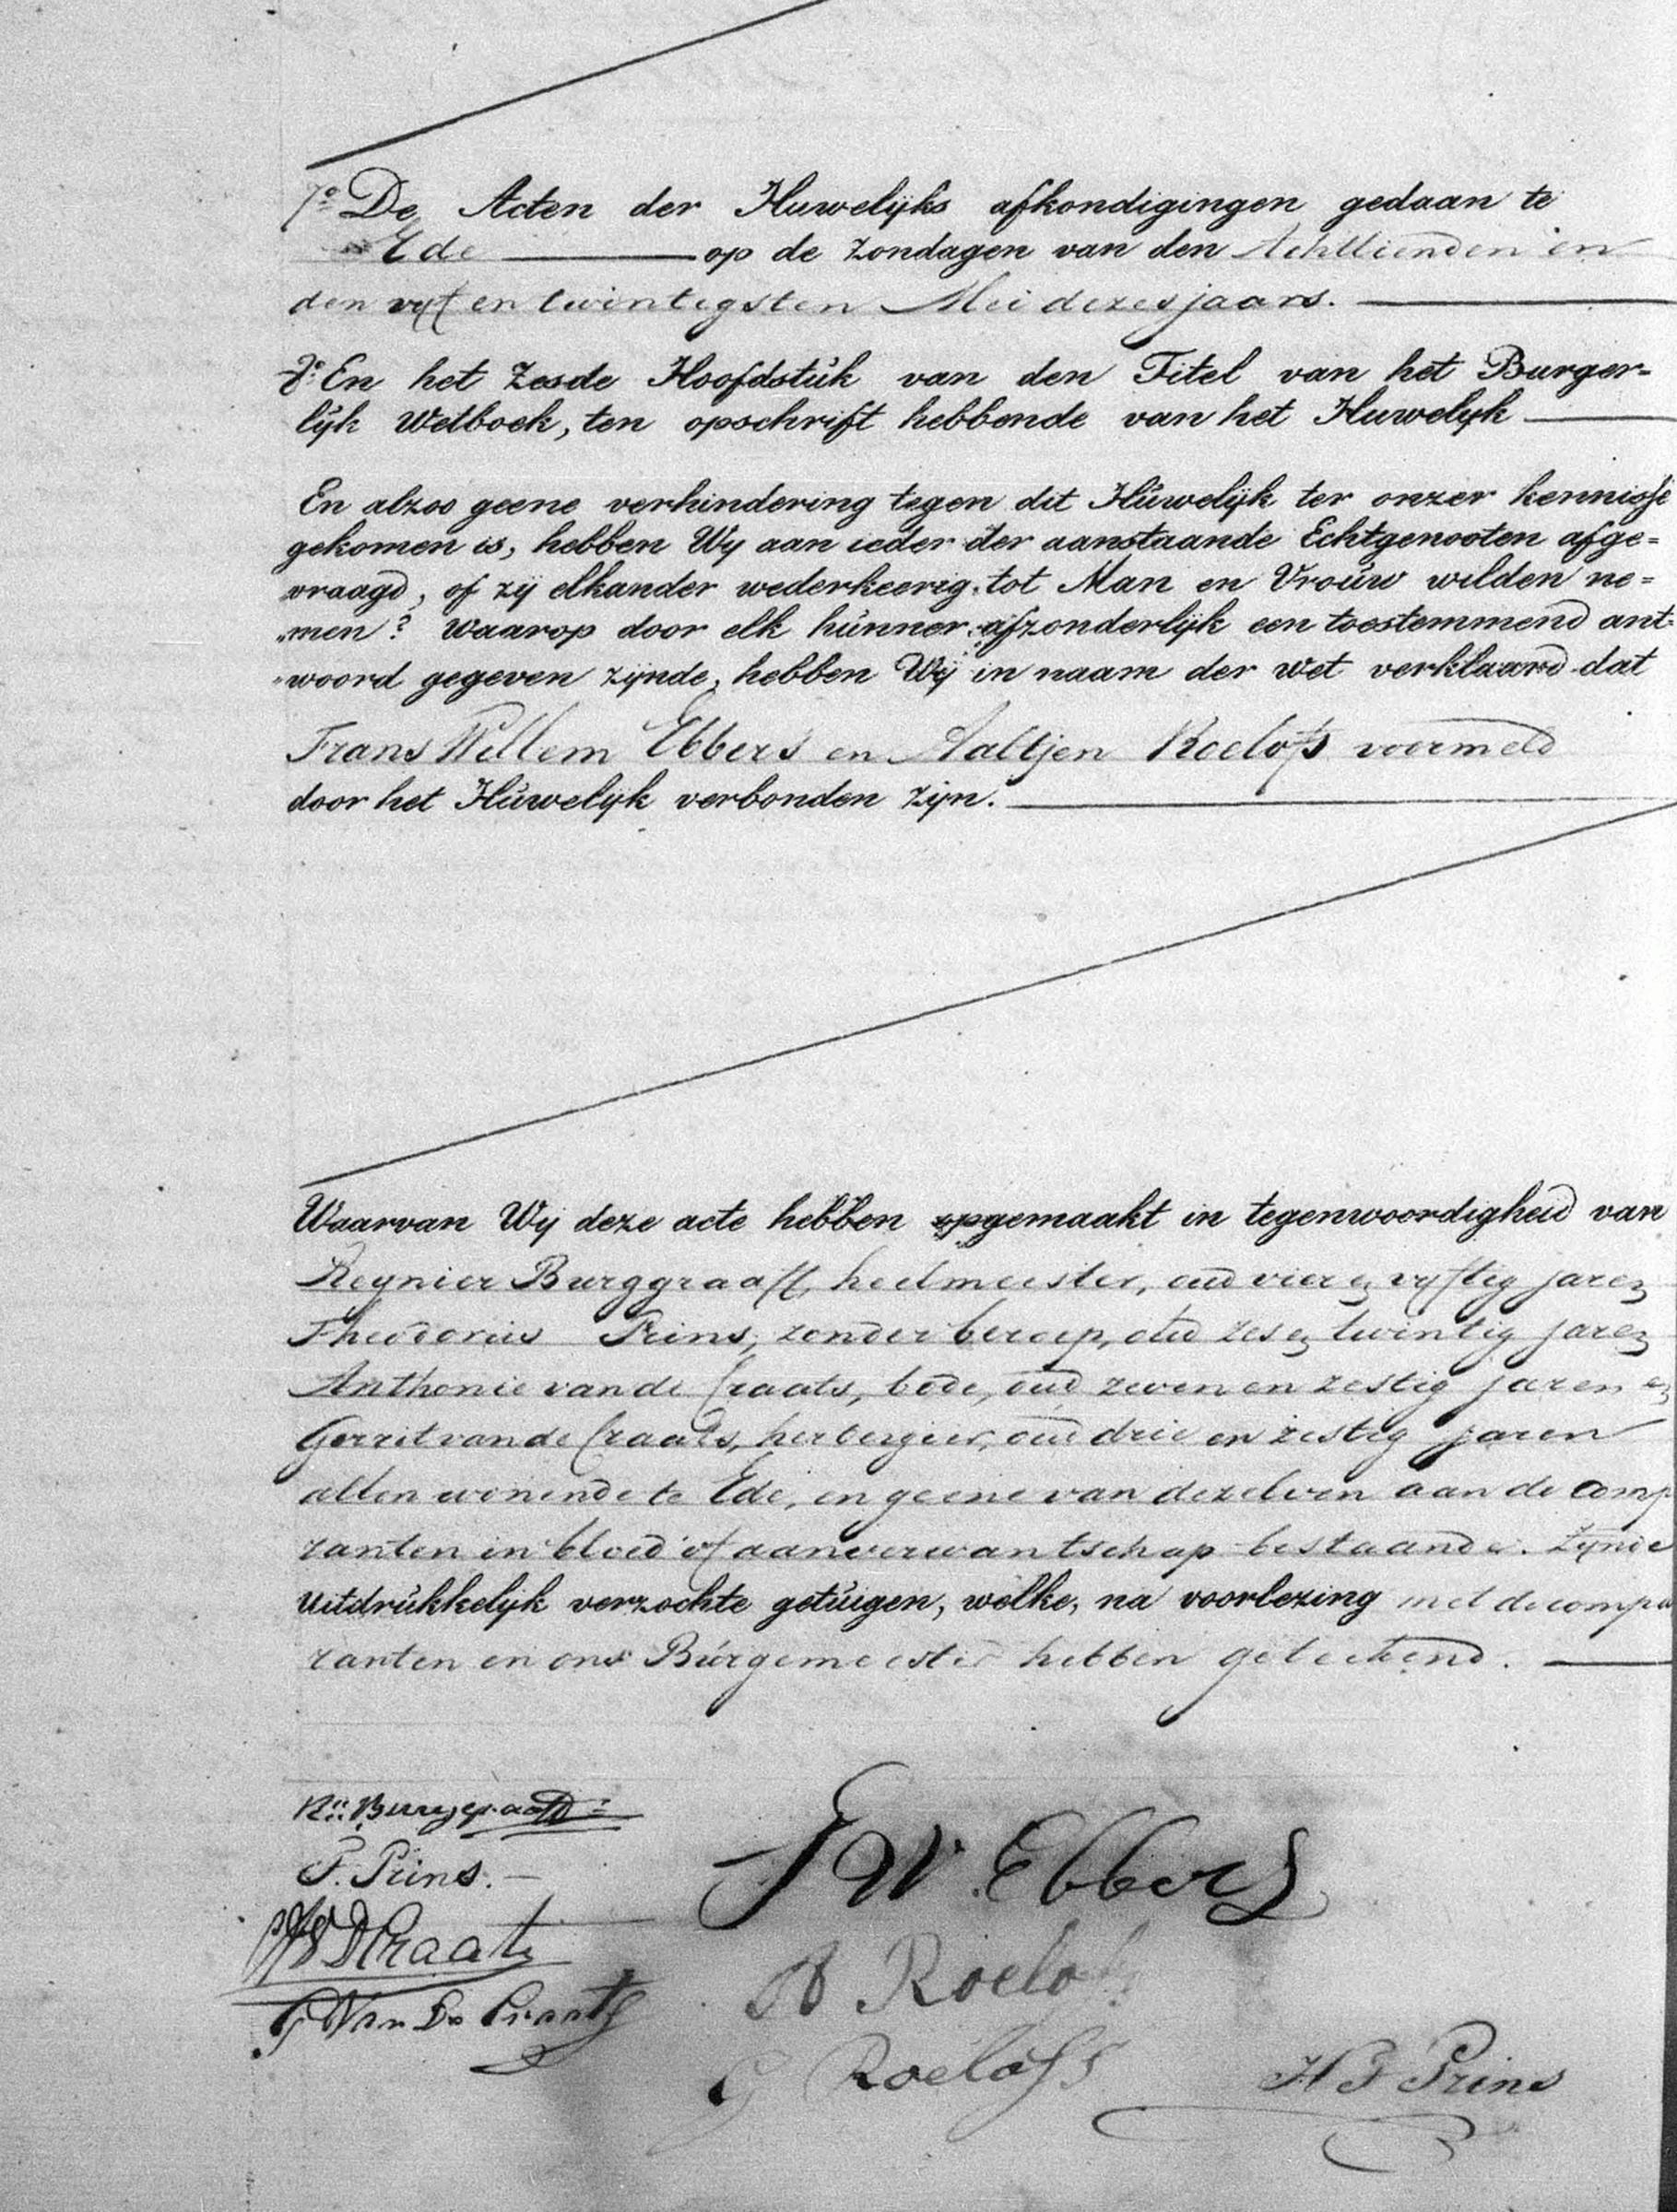 7º De Acten der Huwelijks afkondigingen gedaan te
Ede op de Zondagen van den Achttienden en
den vyf en twintigsten Mei dezes jaars.
8º En het Zesde Hoofdstuk van den Titel van het Burger-
lijk Wetboek, ten opschrift hebbende van het Huwelijk
En alzoo geene verhindering tegen dit Huwelijk ter onzer kennisse
gekomen is, hebben Wy aan ieder der aanstaande Echtgenooten afge=
vraagd, of zij elkander wederkeerig tot Man en Vrouw wilden ne=
men? waarop door elk hunner afzonderlijk een toestemmend ant=
woord gegeven zijnde, hebben Wij in naam der wet verklaard dat
Frans Willem Ebbers en Aaltjen Roelofs voormeld
door het Huwelijk verbonden zijn.
Waarvan Wij deze acte hebben opgemaakt in tegenwoordigheid van
Reynier Burggraaff, heelmeester, oud vier en vyftig jaren
Theodorus Prins, zonder beroep, oud zes en twintig jaren
Anthonie van de Craats, bode, oud zeven en zestig jaren en
Gerrit van de Craats, herbergier, oud drie en zestig jaren
allen wonende te Ede, en geene van dezelven aan de comp
ranten in bloed of aanverwantschap bestaande. Zijnde
uitdrukkelijk verzochte getuigen, welke, na voorlezing met de compa
ranten en ons Burgemeester hebben geteekend.
Rr. Burggraaff
T. Prins.
F W Ebbers
VD Craats
A Roelofs
G Van De Craats
G Roelofs
H F Prins